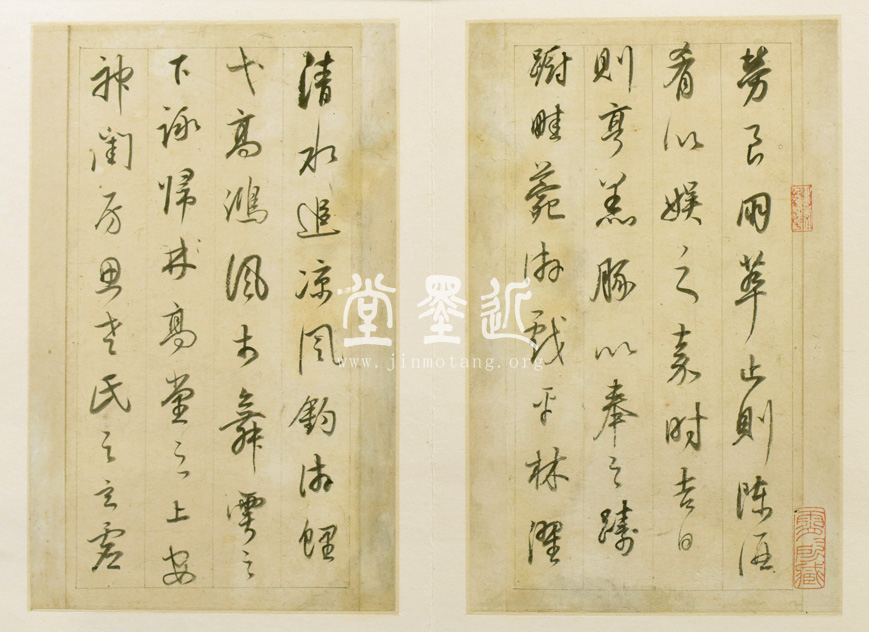 勞良朋萃止則陳酒
肴以娛之嘉時吉日
則亨羔豚以奉之躊
躕畦菀游戲平林濯
清水追涼風釣游鯉
弋高鴻風於舞雩之
下詠歸於高堂之上安
神閨房思老氏之玄虛
堂墨近
www.jinmotang.org